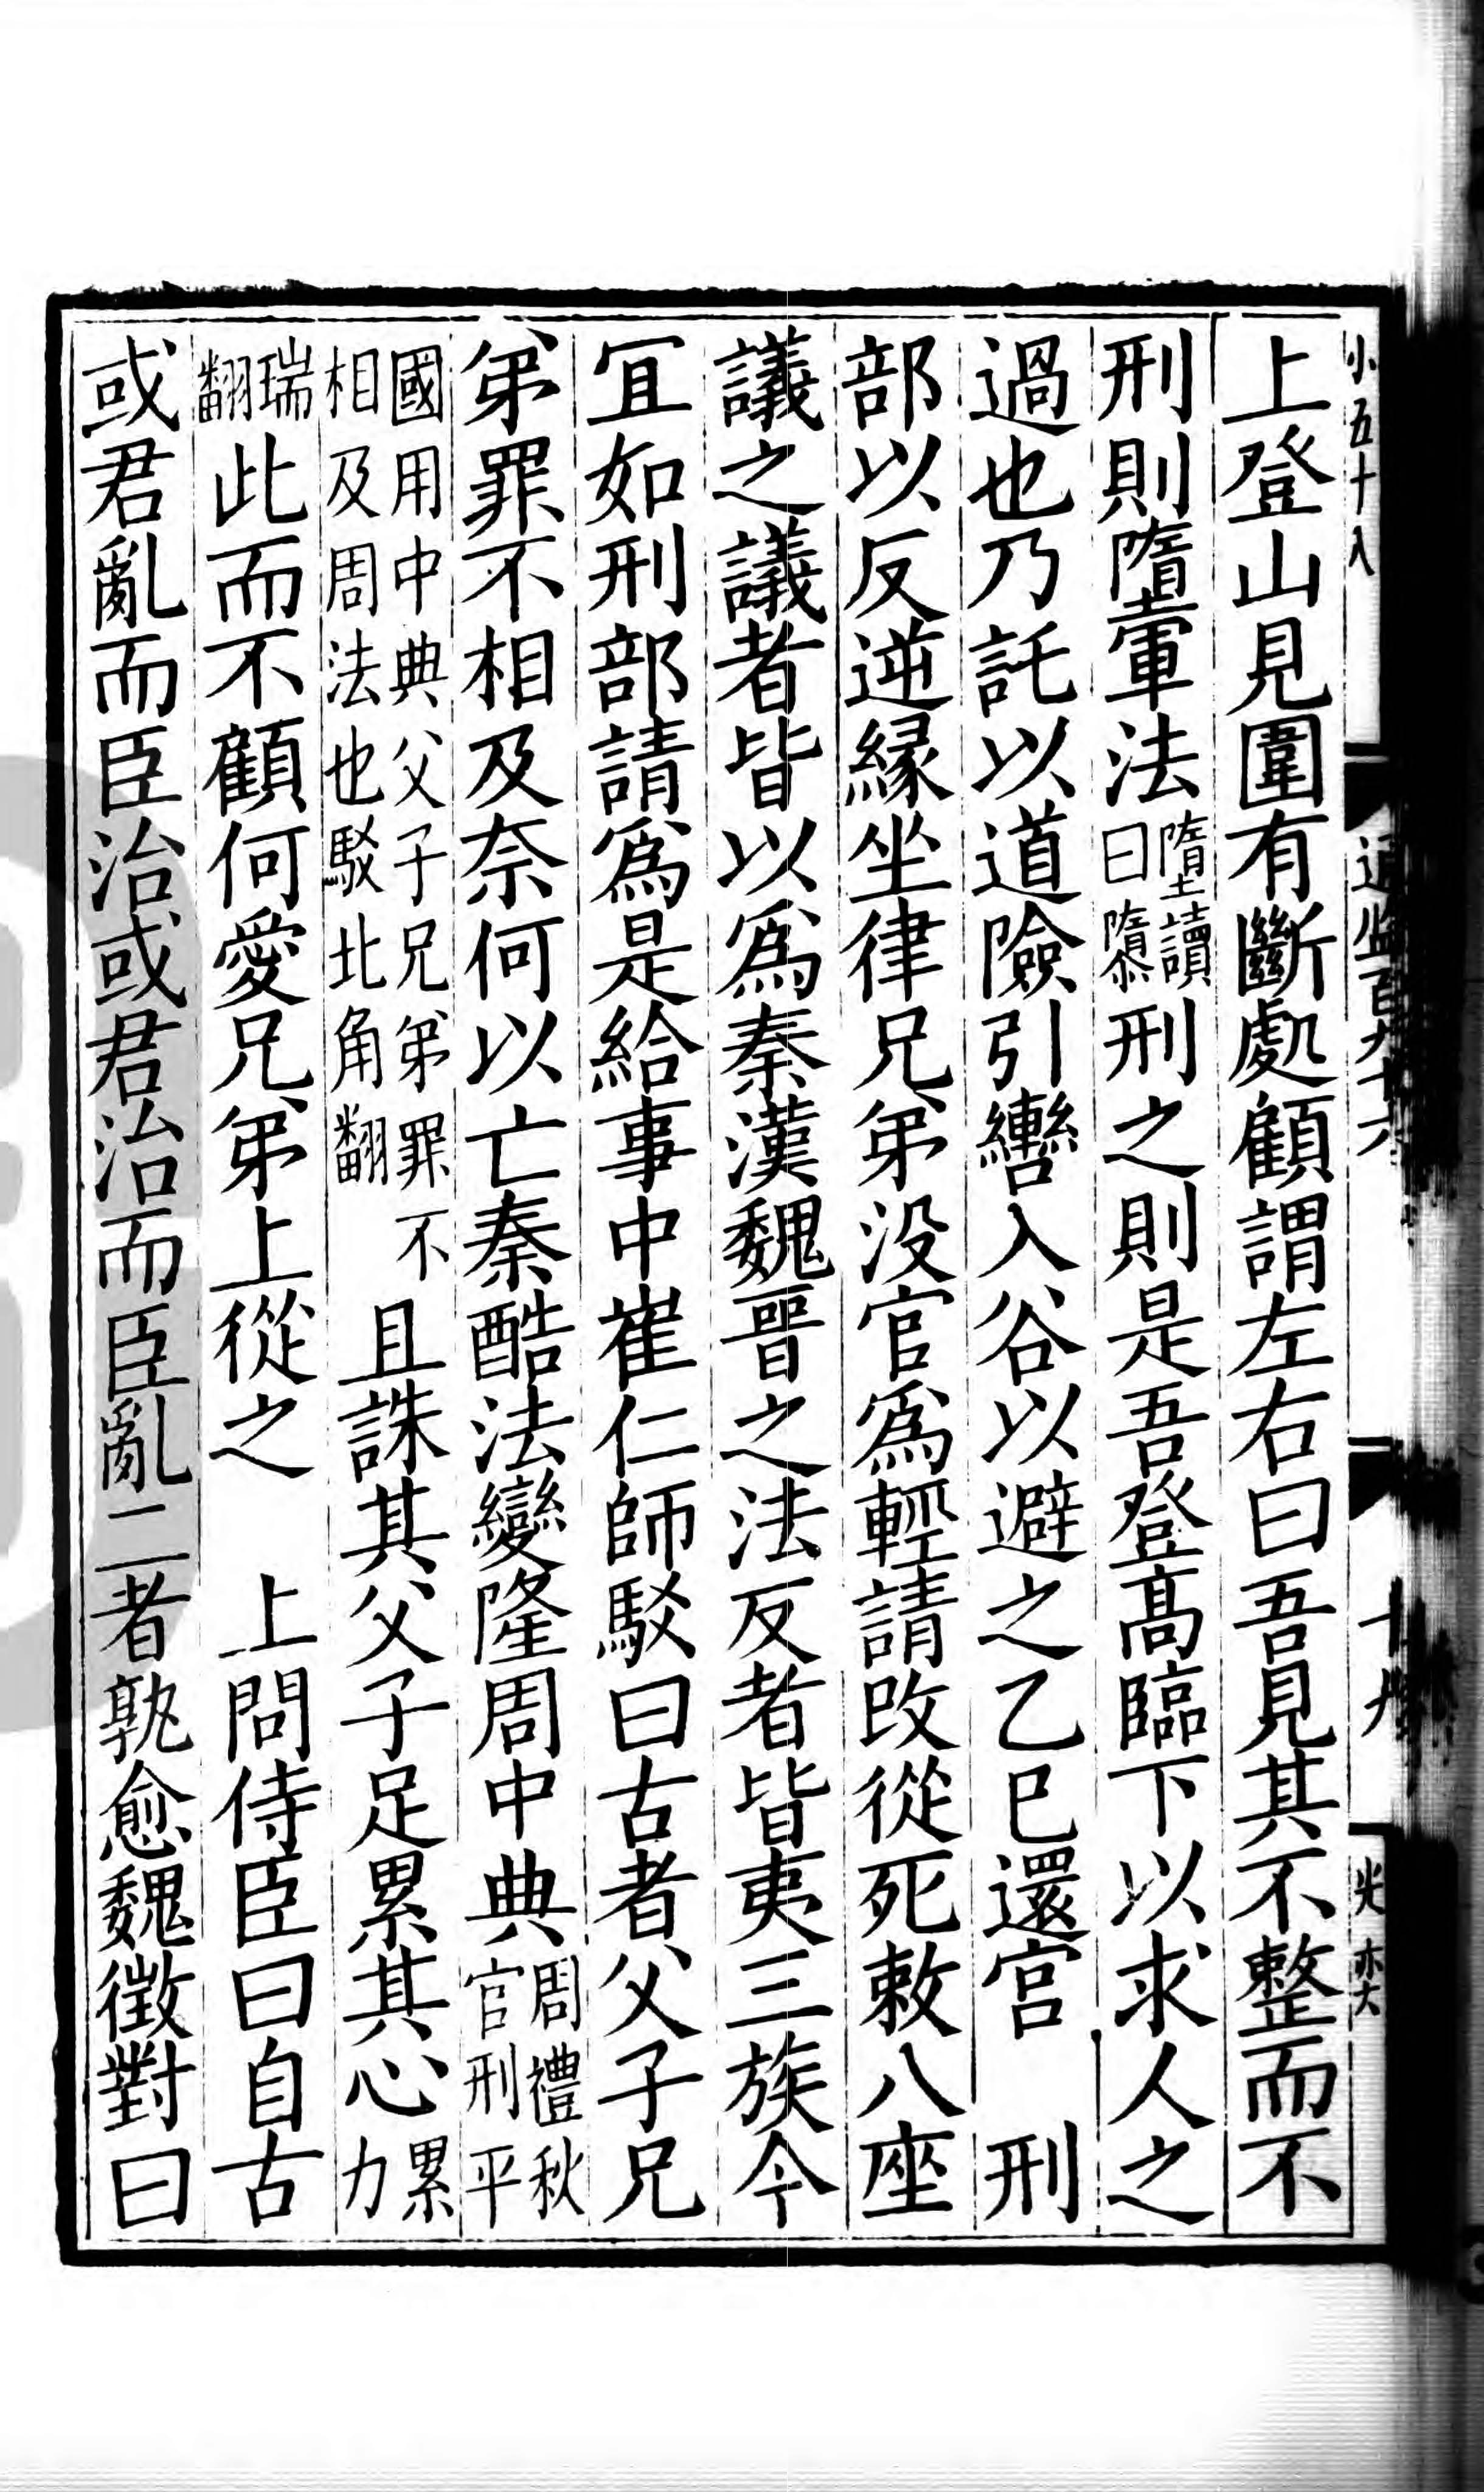 小五十八
通鑑百九十六
十九
上登山見圍有斷處顧謂左右曰吾見其不整而不
刑則隋軍法墮讀曰隳刑之則是吾登高臨下以求人之
過也乃託以道險引轡入谷以避之乙巳還宮　刑
部以反逆緣坐律兄弟沒官爲輕請改從死敕八座
議之議者皆以爲秦漢魏晉之法反者皆夷三族今
冝如刑部請爲是給事中崔仁師駁曰古者父子兄
弟罪不相及奈何以亡秦酷法變隆周中典周禮秋官刑平
國用中典父子兄弟罪不相及周法也駁北角翻且誅其父子足累其心累力
瑞翻此而不顧何愛兄弟上從之　上問侍臣曰自古
或君亂而臣治或君治而臣亂二者孰愈魏徵對曰